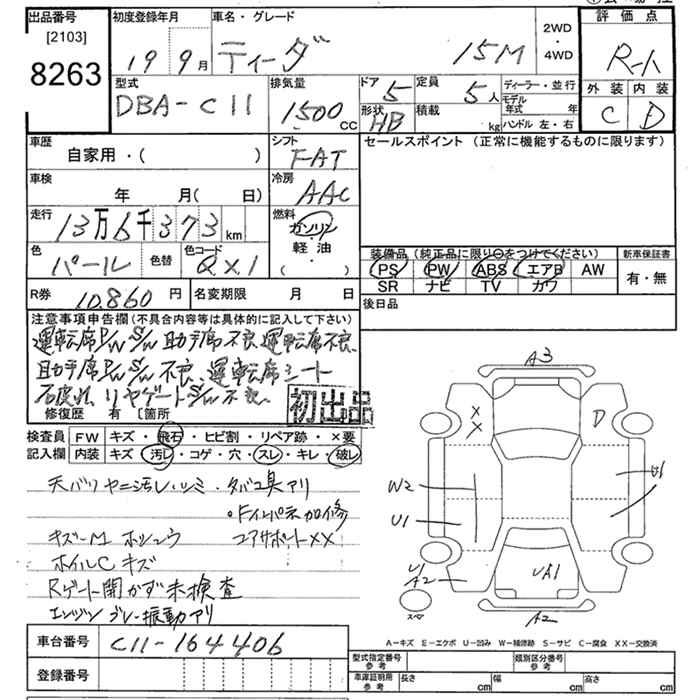 出品番号
[2103]
8263
初度登録年月
19 9月
車名・グレード
ティーダ 15M
2WD
・
4WD
評価点
R-ト
外装 内装
C D
型式
DBA-C11
排気量
1500 CC
ドア 5
定員 5人
形状 HB
積載 kg
ディーラー・並行
モデル年式 年
ハンドル 左・右
車歴
自家用・( )
シフト
FAT
セールスポイント (正常に機能するものに限ります)
車検
年 月(日)
冷房
AAC
走行
13万6千373km
燃料
ガソリン
軽・油
( ・ )
色
パール
色替
色コード
QX1
装備品(純正品に限り○をつけてください)
PS PW ABS エアB AW
SR ナビ TV カワ
新車保証書
有・無
R券 10,860円
名変期限 月 日
後日品
注意事項申告欄(不具合内容等は具体的に記入して下さい)
運転席P/W S/W 助手席不良、運転席不良、
助手席P/W S/W 不良、運転席シート
リヤゲートS/W不良、
修復歴 有 〔箇所
初出品
検査員 FW キズ・飛石・ヒビ割・リペア跡・×要
記入欄 内装 キズ・汚レ・コゲ・穴・スレ・キレ・破レ
天バリヤニ汚レ・シミ・タバコ臭アリ
・Fインパネ加修
コアサポートXX
キズーM ホシュウ
ホイルCキズ
Rゲート開かず未検査
エンジンブレー振動アリ
A3
X
X
D
W2
U1
U1
U1
A2
UA1
スペ
A2
A-キズ E-エクボ U-凹み W-補修跡 S-サビ C-腐食 XX-交換済
車台番号 C11-164406
登録番号
型式指定番号
参考
類別区分番号
参考
車庫証明用
参考
長さ cm 幅 cm 高さ cm